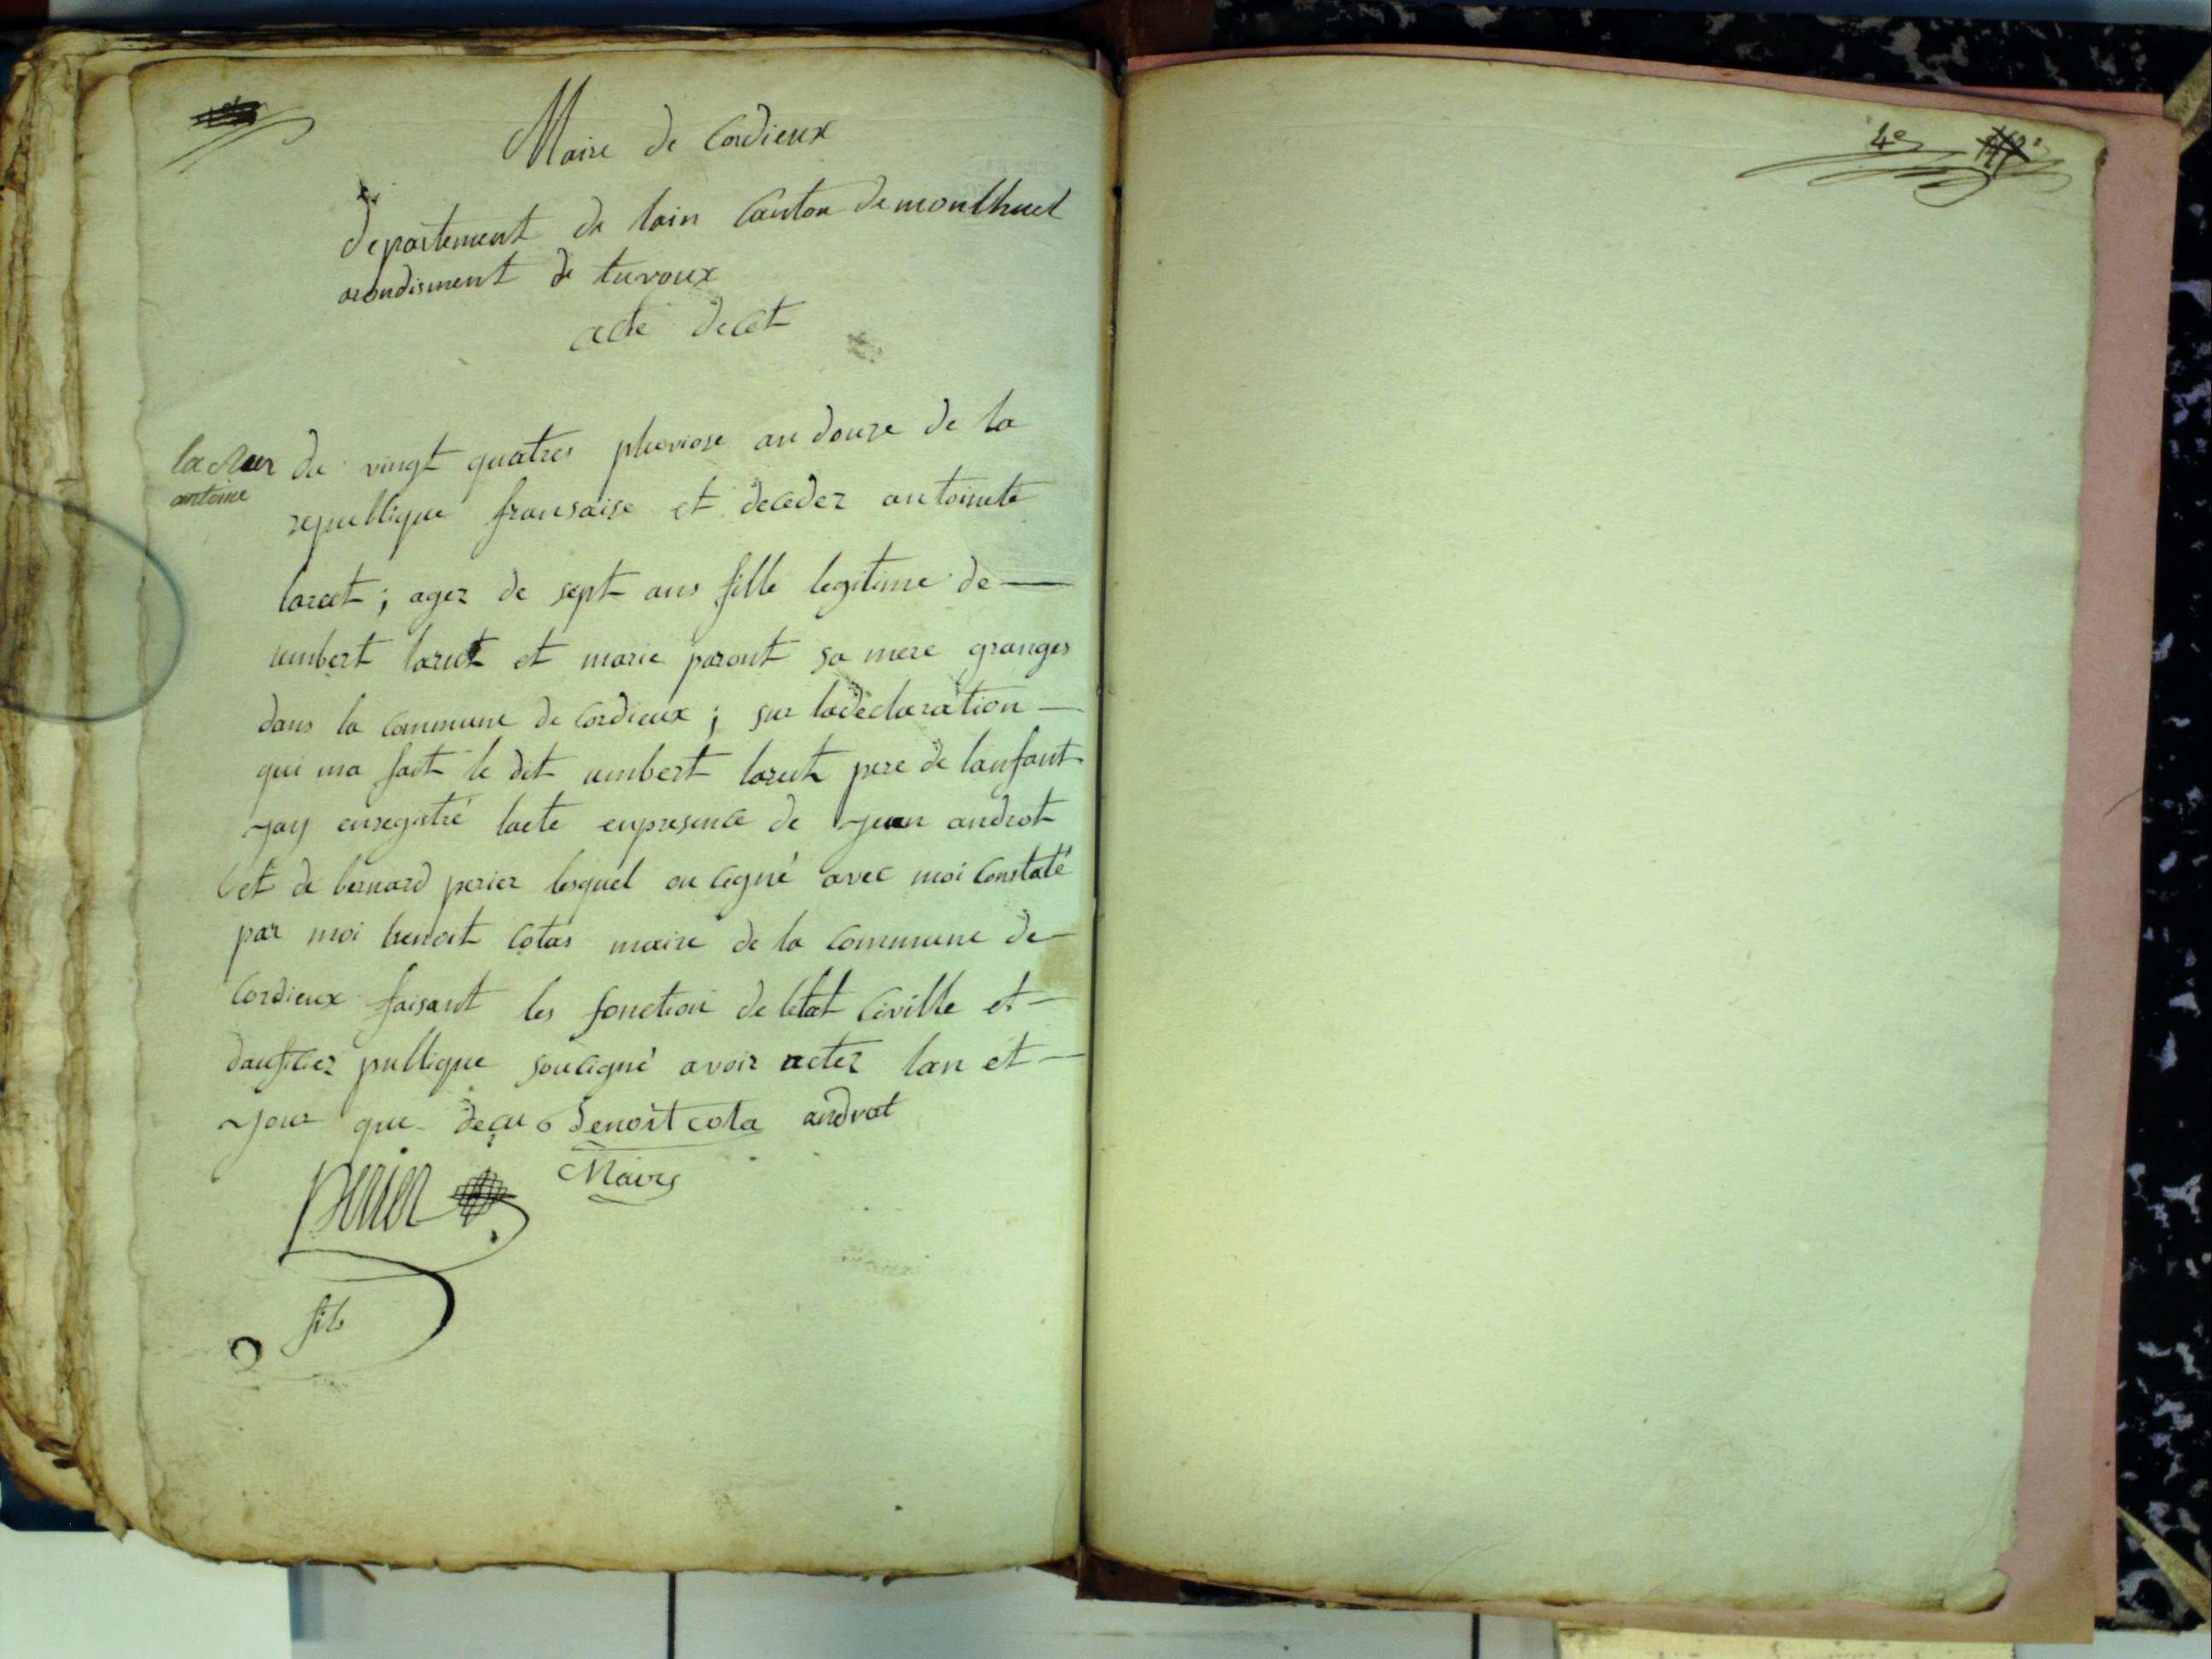 Maire de Cordieux
departement de lain Canton de montluel
arondisment de trevoux
acte decet
du vingt quatres pluviose an douze de la
antoine
republique fransaise et decedez antoinete
laret ; agez de sept ans fille legitime de
umbert laret et marie paront sa mere granges
dans la commune de Cordieux ; sur ladeclaration
qui ma fait le dit umbert laret pere de lanfant
jay enregistré lacte enpresence de jean androt
et de bernard perier lesquel on cigné avec moi Constaté
par moi benoit Cotas maire de la Commune de
Cordieux faisant les fonction de letat Civille et
dauficiez publique soucigné avoir actez lan et
jour que deçu benoit cota androt
Maire
perier
fils
4e